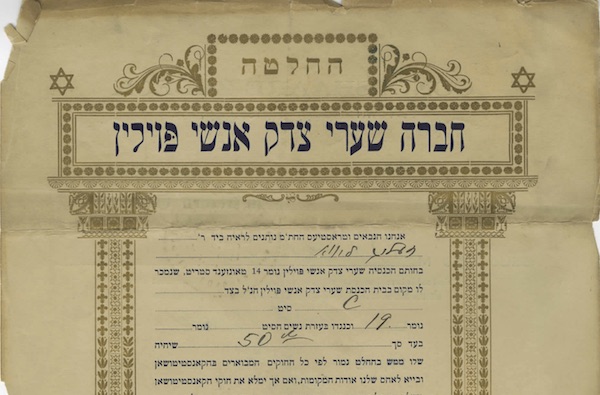 החלטה
חברה שערי צדק אנשי פוילין
אנחנו הגבאים וטראסטיעס החת"מ נותנים לראיה ביד ר'
בחותם הכנסיה שערי צדק אנשי פוילין נומר 14 טאונזענד סטריט, שנמכר
לו מקום בבית הכנסת שערי צדק אנשי פוילין הנ"ל בצד
C סיט
נומר 19 וכנגדו בעזרת נשים הסיט נומר
בעד סך 50 שיהיה
שלו ממש בהחלט גמור לפי כל החוקים המבוארים בהקאנסטיטושאן
ובייא לאהס שלנו אודות המקומות, ואם אך ימלא את חוקי הקאנסטיטושאן